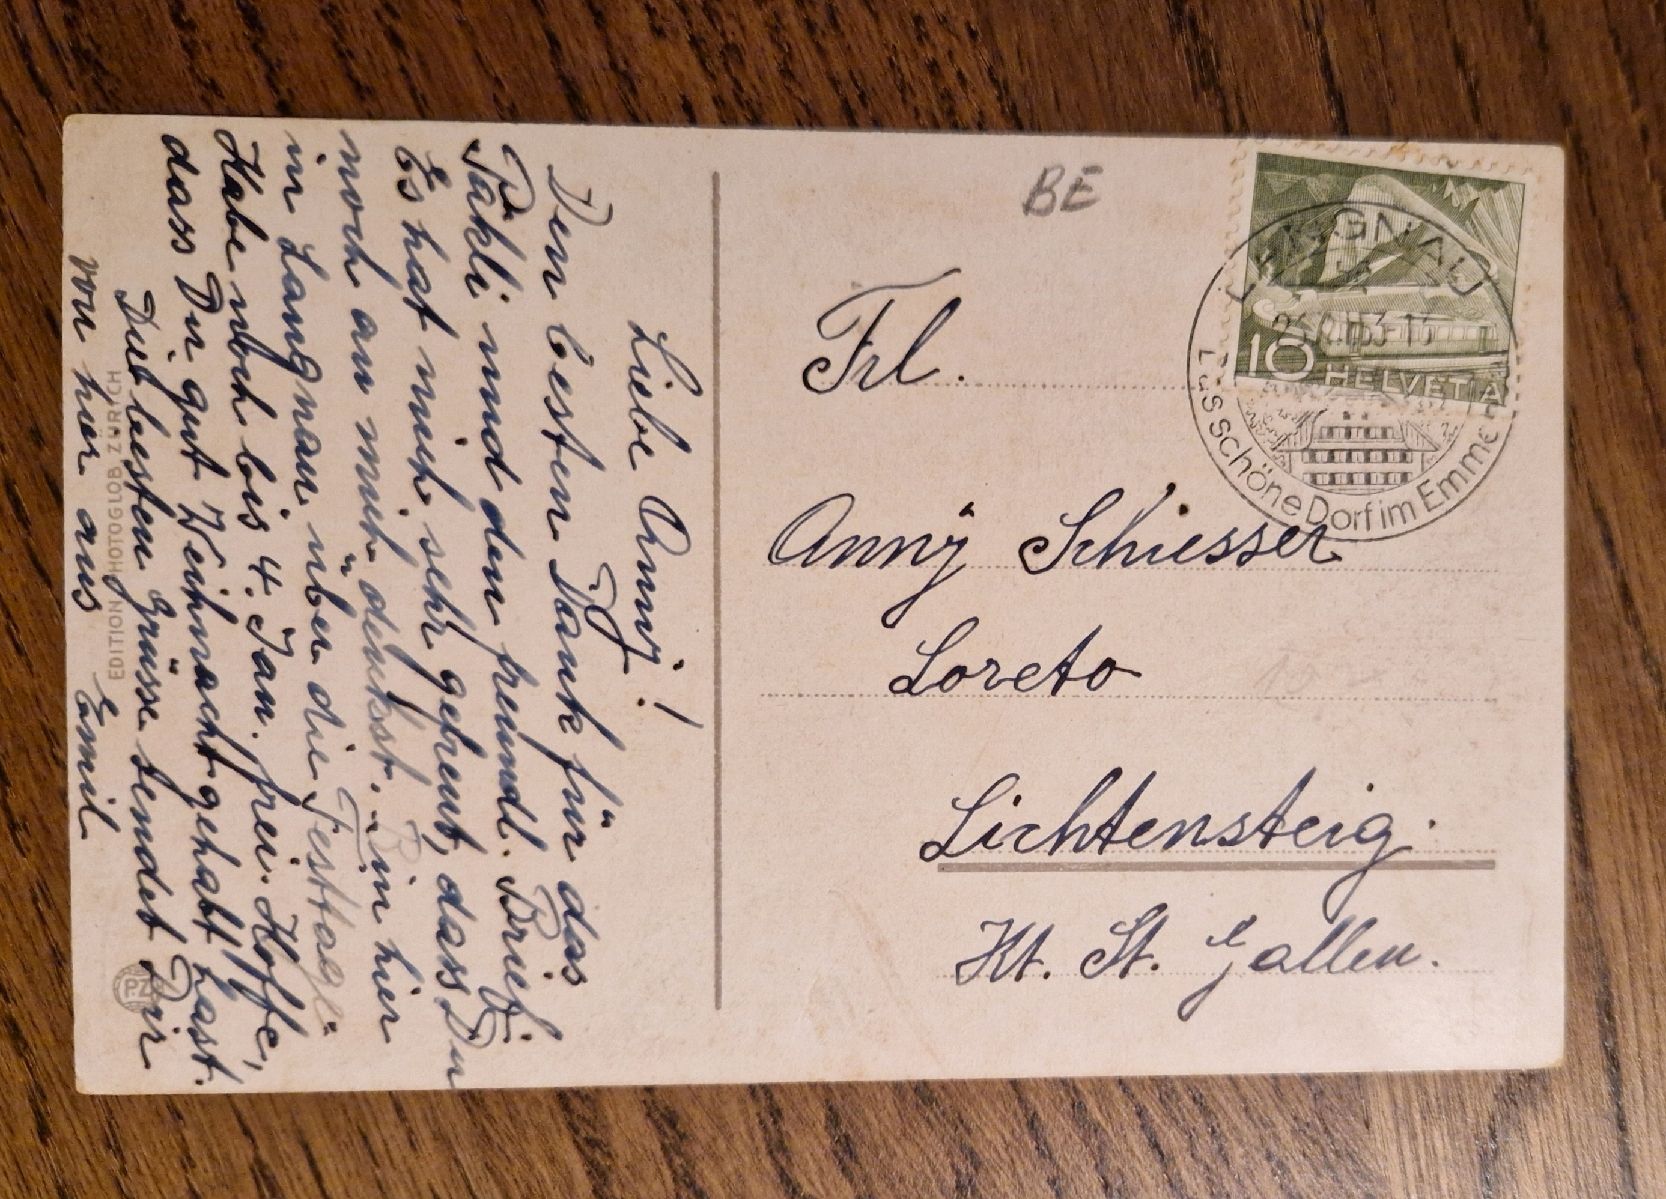 Liebe Anny!
Den besten Dank für das
Päkli und den freundl. Brief.
Es hat mich sehr gefreut, dass Du
noch an mich denkst. Bin hier
in Langnau über die Festtage.
Habe noch bis 4. Jan. frei. Hoffe,
dass Du gut Weihnacht gehabt hast.
Die besten Grüsse sendet Dir
von hier aus Emil
EDITION PHOTOGLOB ZÜRICH
PZ
BE
LANGNAU
10 HELVETIA
Das schöne Dorf im Emmen
Frl.
Anny Schiesser
Loreto
Lichtensteig.
Kt. St. Gallen.